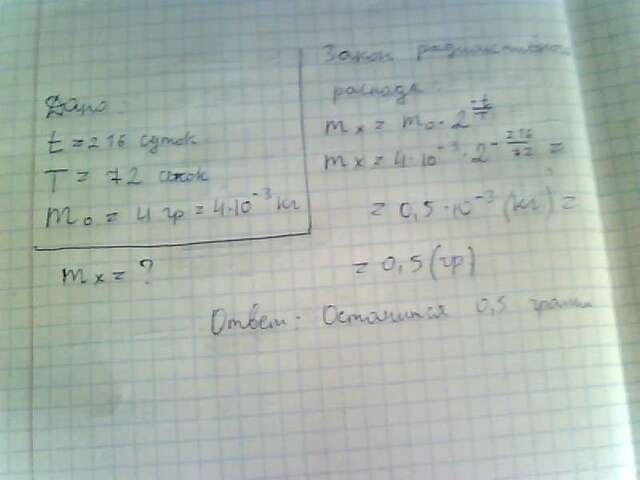 Дано:
t = 216 суток
T = 72 суток
m₀ = 4 гр = 4·10⁻³ кг
mₓ = ?
Закон радиоактивного
распада:
mₓ = m₀ · 2^(-t/T)
mₓ = 4·10⁻³ · 2^(-216/72) =
= 0,5·10⁻³ (кг) =
= 0,5 (гр)
Ответ: Останится 0,5 грамм